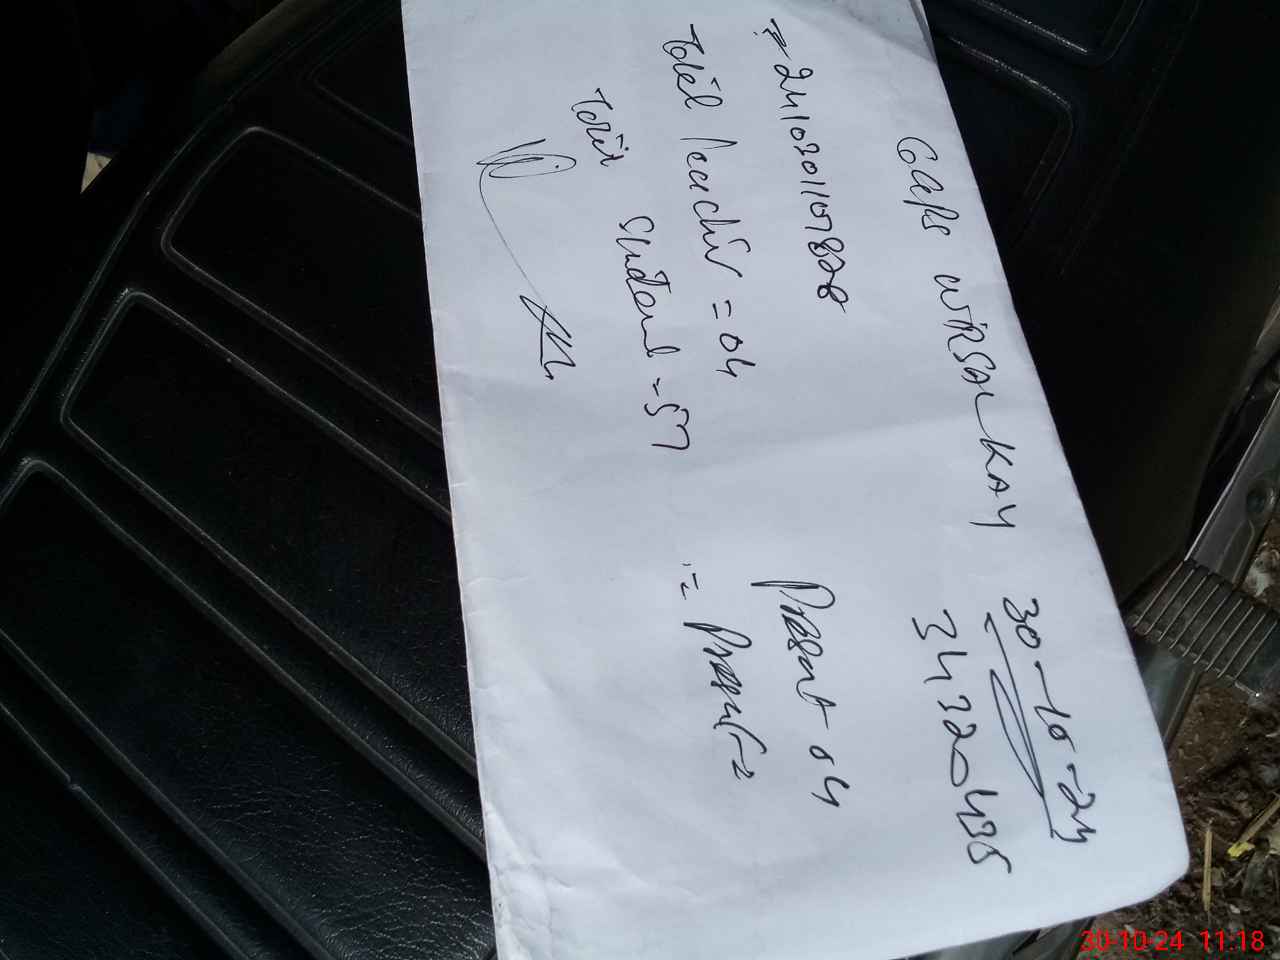 30-10-24
GGPS WIRSAL KAY 34320435
2410301107828
Total Teachir = 04 Present 04
Total Student = 57 = Present =
30-10-24 11:18